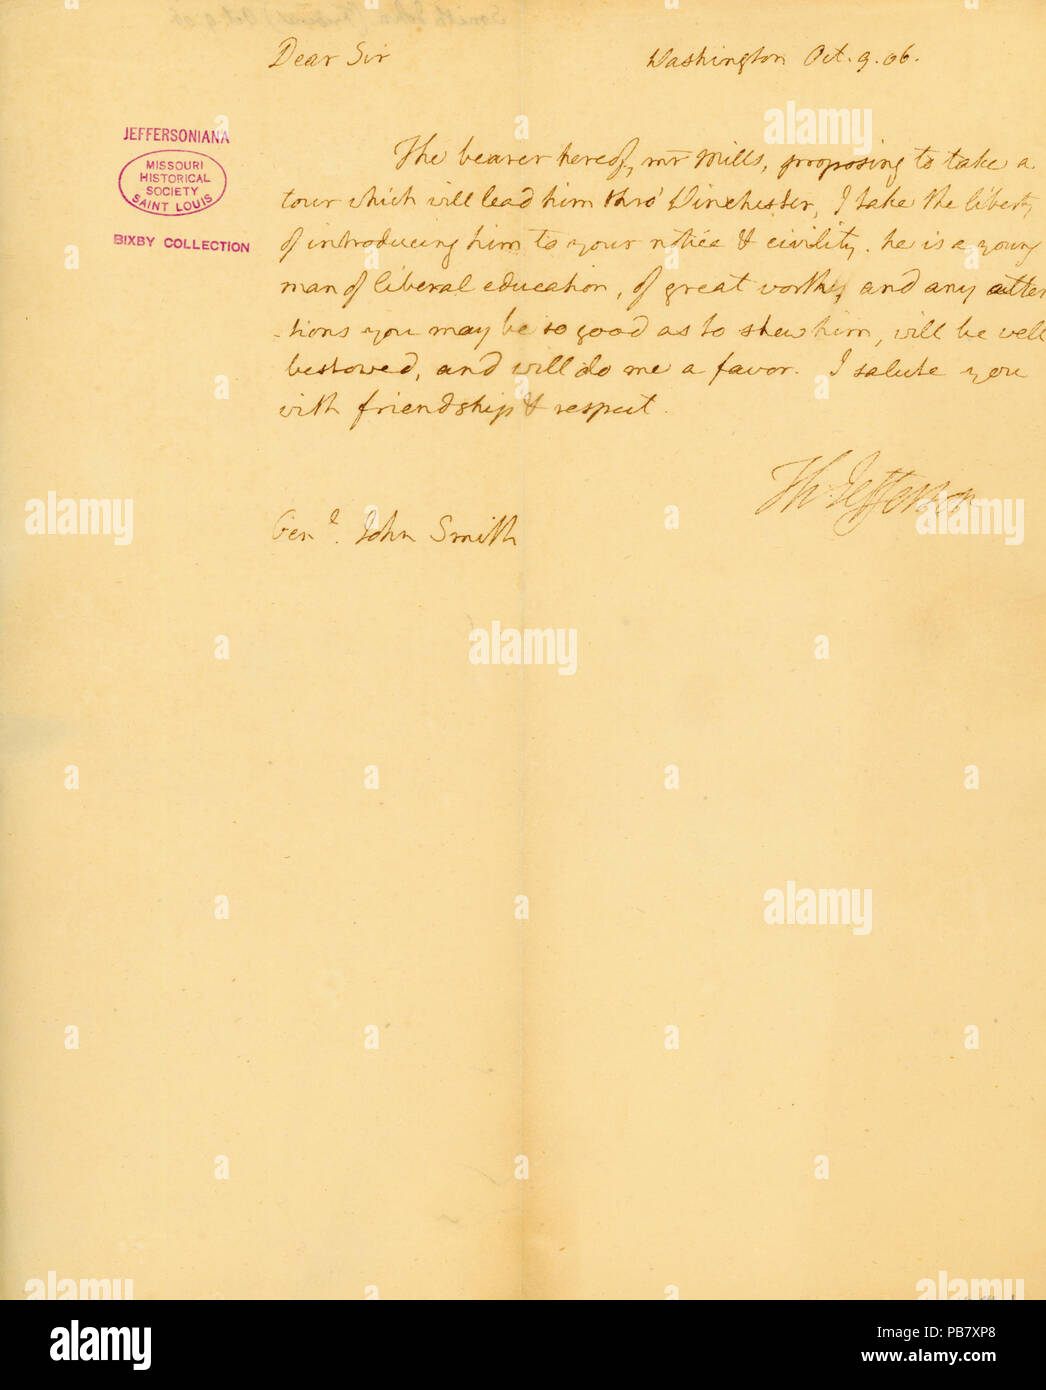 Dear Sir Washington Oct. 9. 06.
JEFFERSONIANA
MISSOURI
HISTORICAL
SOCIETY
SAINT LOUIS
BIXBY COLLECTION
The bearer hereof, mr Mills, proposing to take a
tour which will lead him thro' Winchester, I take the liberty
of introducing him to your notice & civility. he is a young
man of liberal education, of great worth, and any atten
-tions you may be so good as to shew him, will be well
bestowed, and will do me a favor. I salute you
with friendship & respect.
Th: Jefferson
Genl. John Smith
alamy
alamy
Image ID: PB7XP8
www.alamy.com